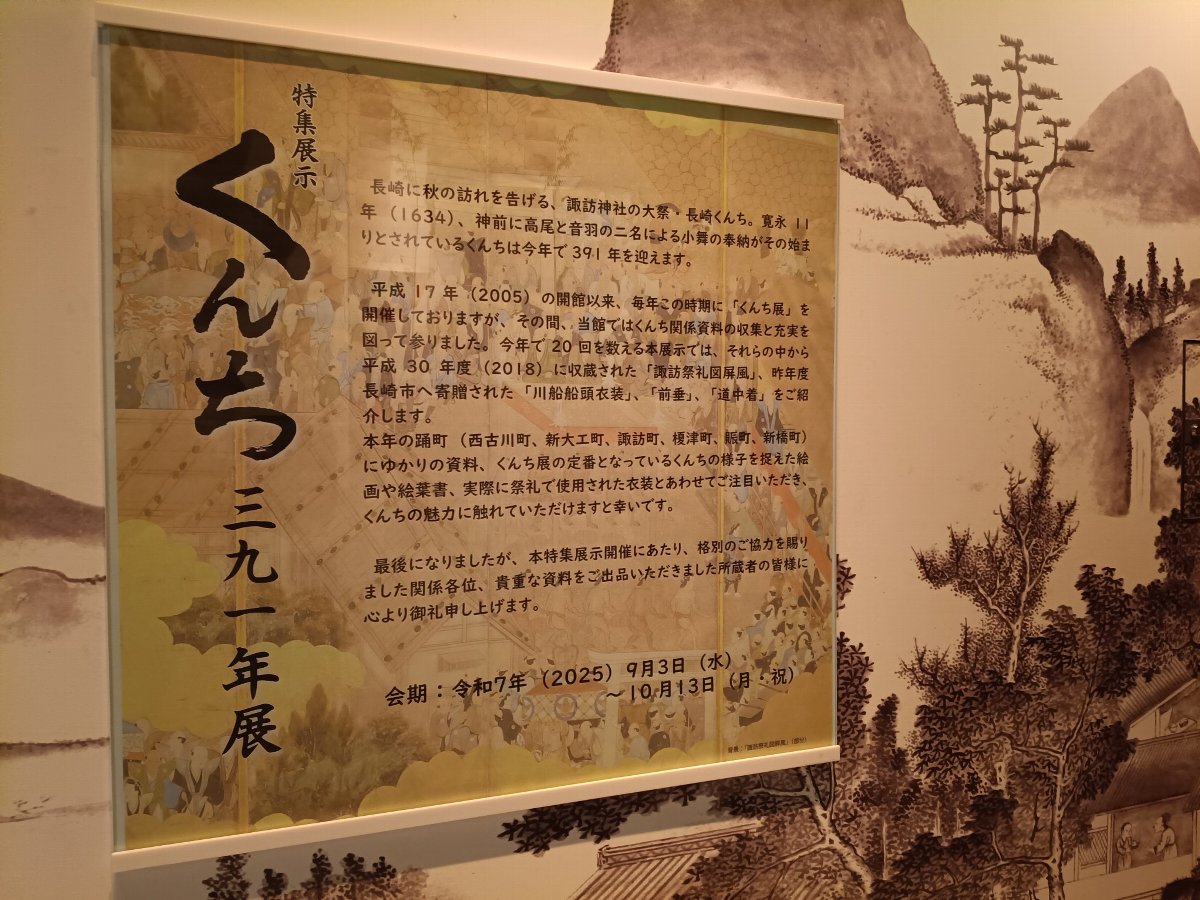 特集展示
くんち三九一年展
長崎に秋の訪れを告げる、諏訪神社の大祭・長崎くんち。寛永 11
年（1634）、神前に高尾と音羽の二名による小舞の奉納がその始ま
りとされているくんちは今年で 391 年を迎えます。
平成 17 年（2005）の開館以来、毎年この時期に「くんち展」を
開催しておりますが、その間、当館ではくんち関係資料の収集と充実を
図って参りました。今年で 20 回を数える本展示では、それらの中から
平成 30 年度（2018）に収蔵された「諏訪祭礼図屏風」、昨年度
長崎市へ寄贈された「川船船頭衣装」、「前垂」、「道中着」をご紹
介します。
本年の踊町（西古川町、新大工町、諏訪町、榎津町、賑町、新橋町）
にゆかりの資料、くんち展の定番となっているくんちの様子を捉えた絵
画や絵葉書、実際に祭礼で使用された衣装とあわせてご注目いただき、
くんちの魅力に触れていただけますと幸いです。
最後になりましたが、本特集展示開催にあたり、格別のご協力を賜り
ました関係各位、貴重な資料をご出品いただきました所蔵者の皆様に
心より御礼申し上げます。
会期：令和7年（2025）9月3日（水）
～10月13日（月・祝）
背景：「諏訪祭礼図屏風」（部分）